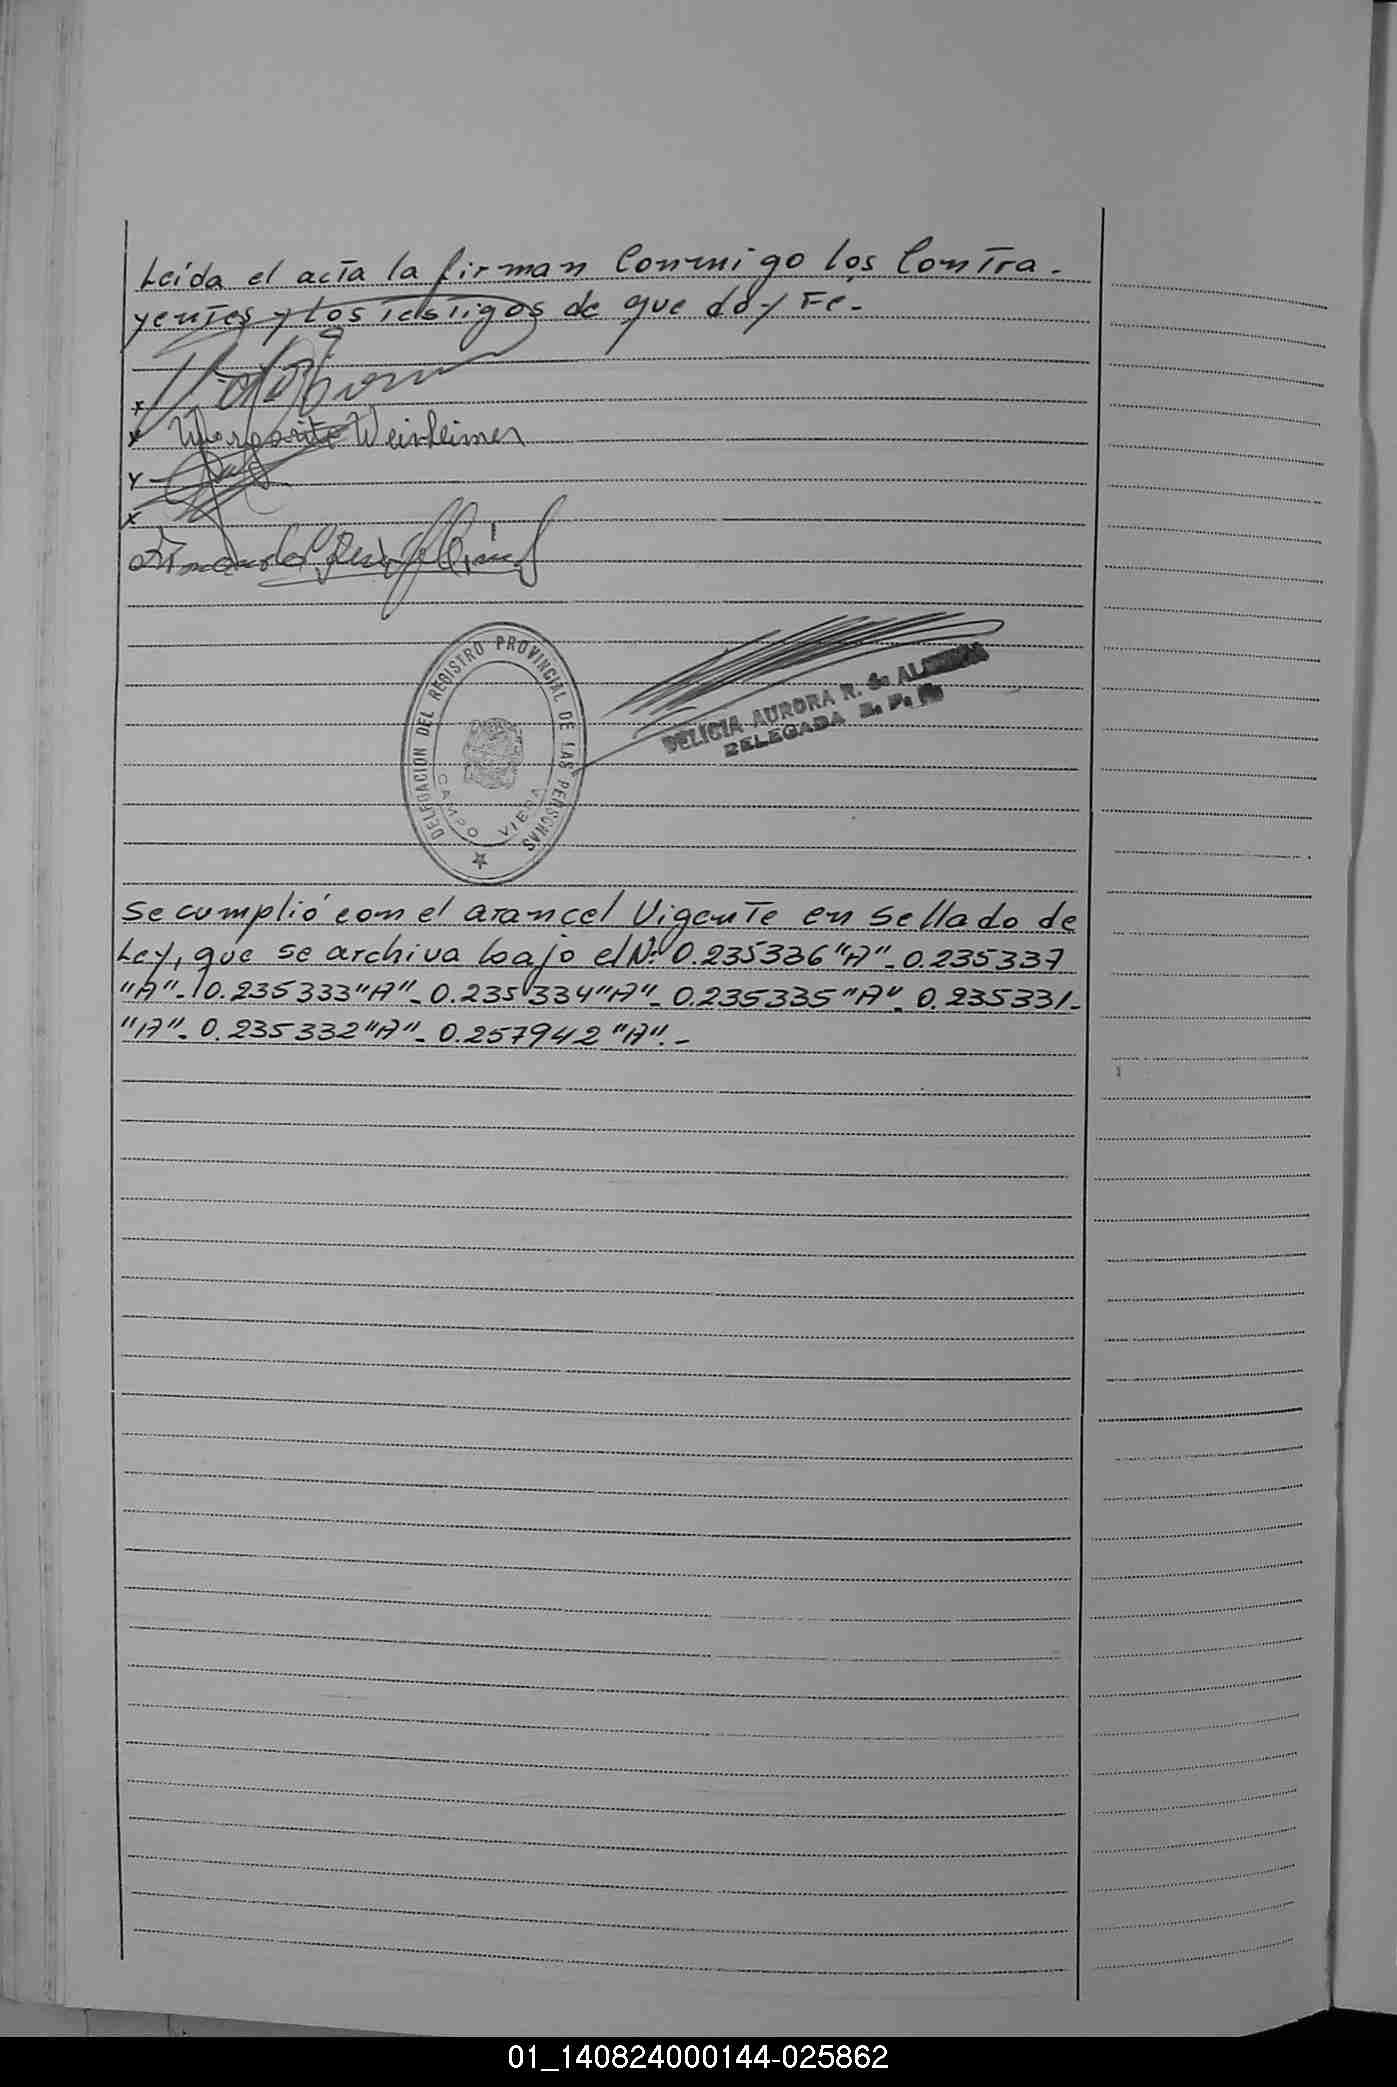 Leída el acta la firman Conmigo los Contra-
yentes y los testigos de que doy Fé.-
x
x Margarita Weinheimer
x
x
DELEGACION DEL REGISTRO PROVINCIAL DE LAS PERSONAS
CAMPO VIERA
DELICIA AURORA R. de
DELEGADA R. P.
Se cumplió con el arancel Vigente en Sellado de
Ley, que se archiva bajo el Nº 0.235336 "A"-0.235337
"A"- 0.235333 "A"- 0.235334 "A"- 0.235335 "A"- 0.235331-
"A"- 0.235332 "A"- 0.257942 "A".-
01_140824000144-025862